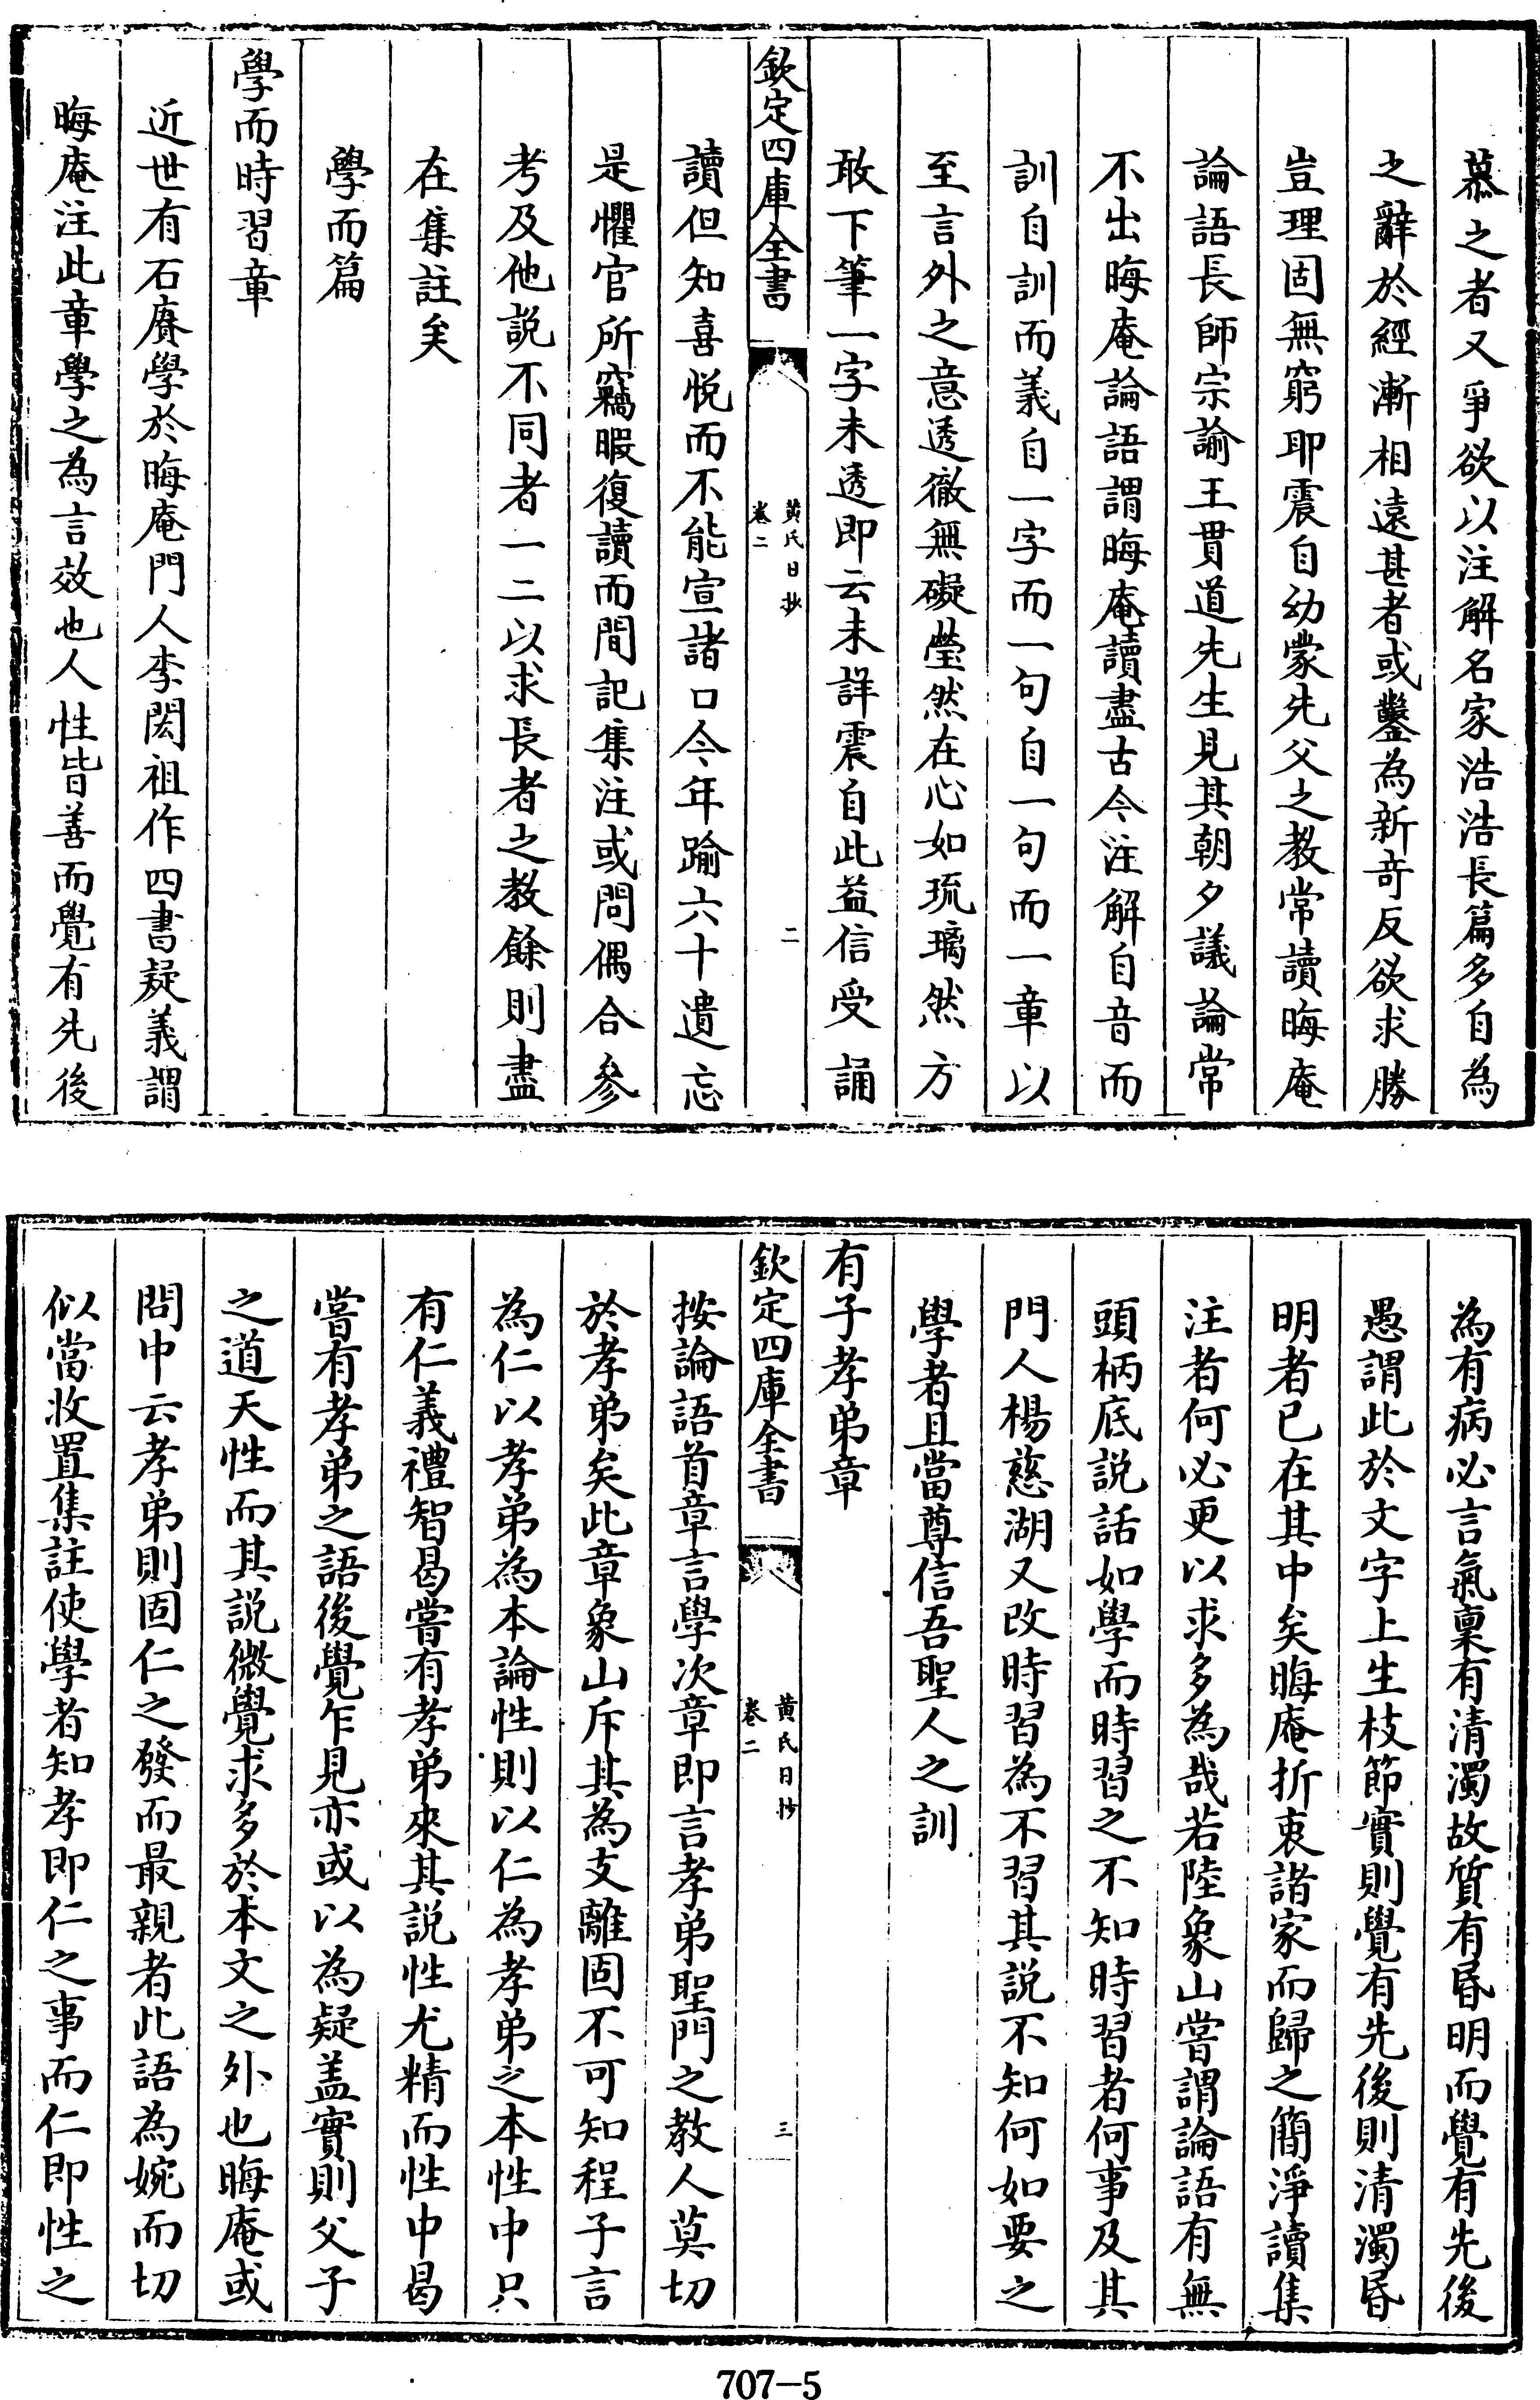 慕之者又爭欲以注解名家浩浩長篇多自為
之辭於經漸相遠甚者或鑿為新奇反欲求勝
豈理固無窮耶震自幼蒙先父之教常讀晦庵
論語長師宗諭王貫道先生見其朝夕議論常
不出晦庵論語謂晦庵讀盡古今注解自音而
訓自訓而義自一字而一句自一句而一章以
至言外之意透徹無礙瑩然在心如琉璃然方
敢下筆一字未透即云未詳震自此益信受誦
欽定四庫全書
黃氏日抄
卷二
二
讀但知喜悅而不能宣諸口今年踰六十遺忘
是懼官所竊暇復讀而間記集注或問偶合參
考及他說不同者一二以求長者之教餘則盡
在集註矣
學而篇
學而時習章
近世有石賡學於晦庵門人李閎祖作四書疑義謂
晦庵注此章學之為言效也人性皆善而覺有先後
為有病必言氣稟有清濁故質有昏明而覺有先後
愚謂此於文字上生枝節實則覺有先後則清濁昏
明者已在其中矣晦庵折衷諸家而歸之簡淨讀集
注者何必更以求多為哉若陸象山嘗謂論語有無
頭柄底說話如學而時習之不知時習者何事及其
門人楊慈湖又改時習為不習其說不知何如要之
學者且當尊信吾聖人之訓
有子孝弟章
欽定四庫全書
黃氏日抄
卷二
三
按論語首章言學次章即言孝弟聖門之教人莫切
於孝弟矣此章象山斥其為支離固不可知程子言
為仁以孝弟為本論性則以仁為孝弟之本性中只
有仁義禮智曷嘗有孝弟來其說性尤精而性中曷
嘗有孝弟之語後覺乍見亦或以為疑盖實則父子
之道天性而其說微覺求多於本文之外也晦庵或
問中云孝弟則固仁之發而最親者此語為婉而切
似當收置集註使學者知孝即仁之事而仁即性之
707-5